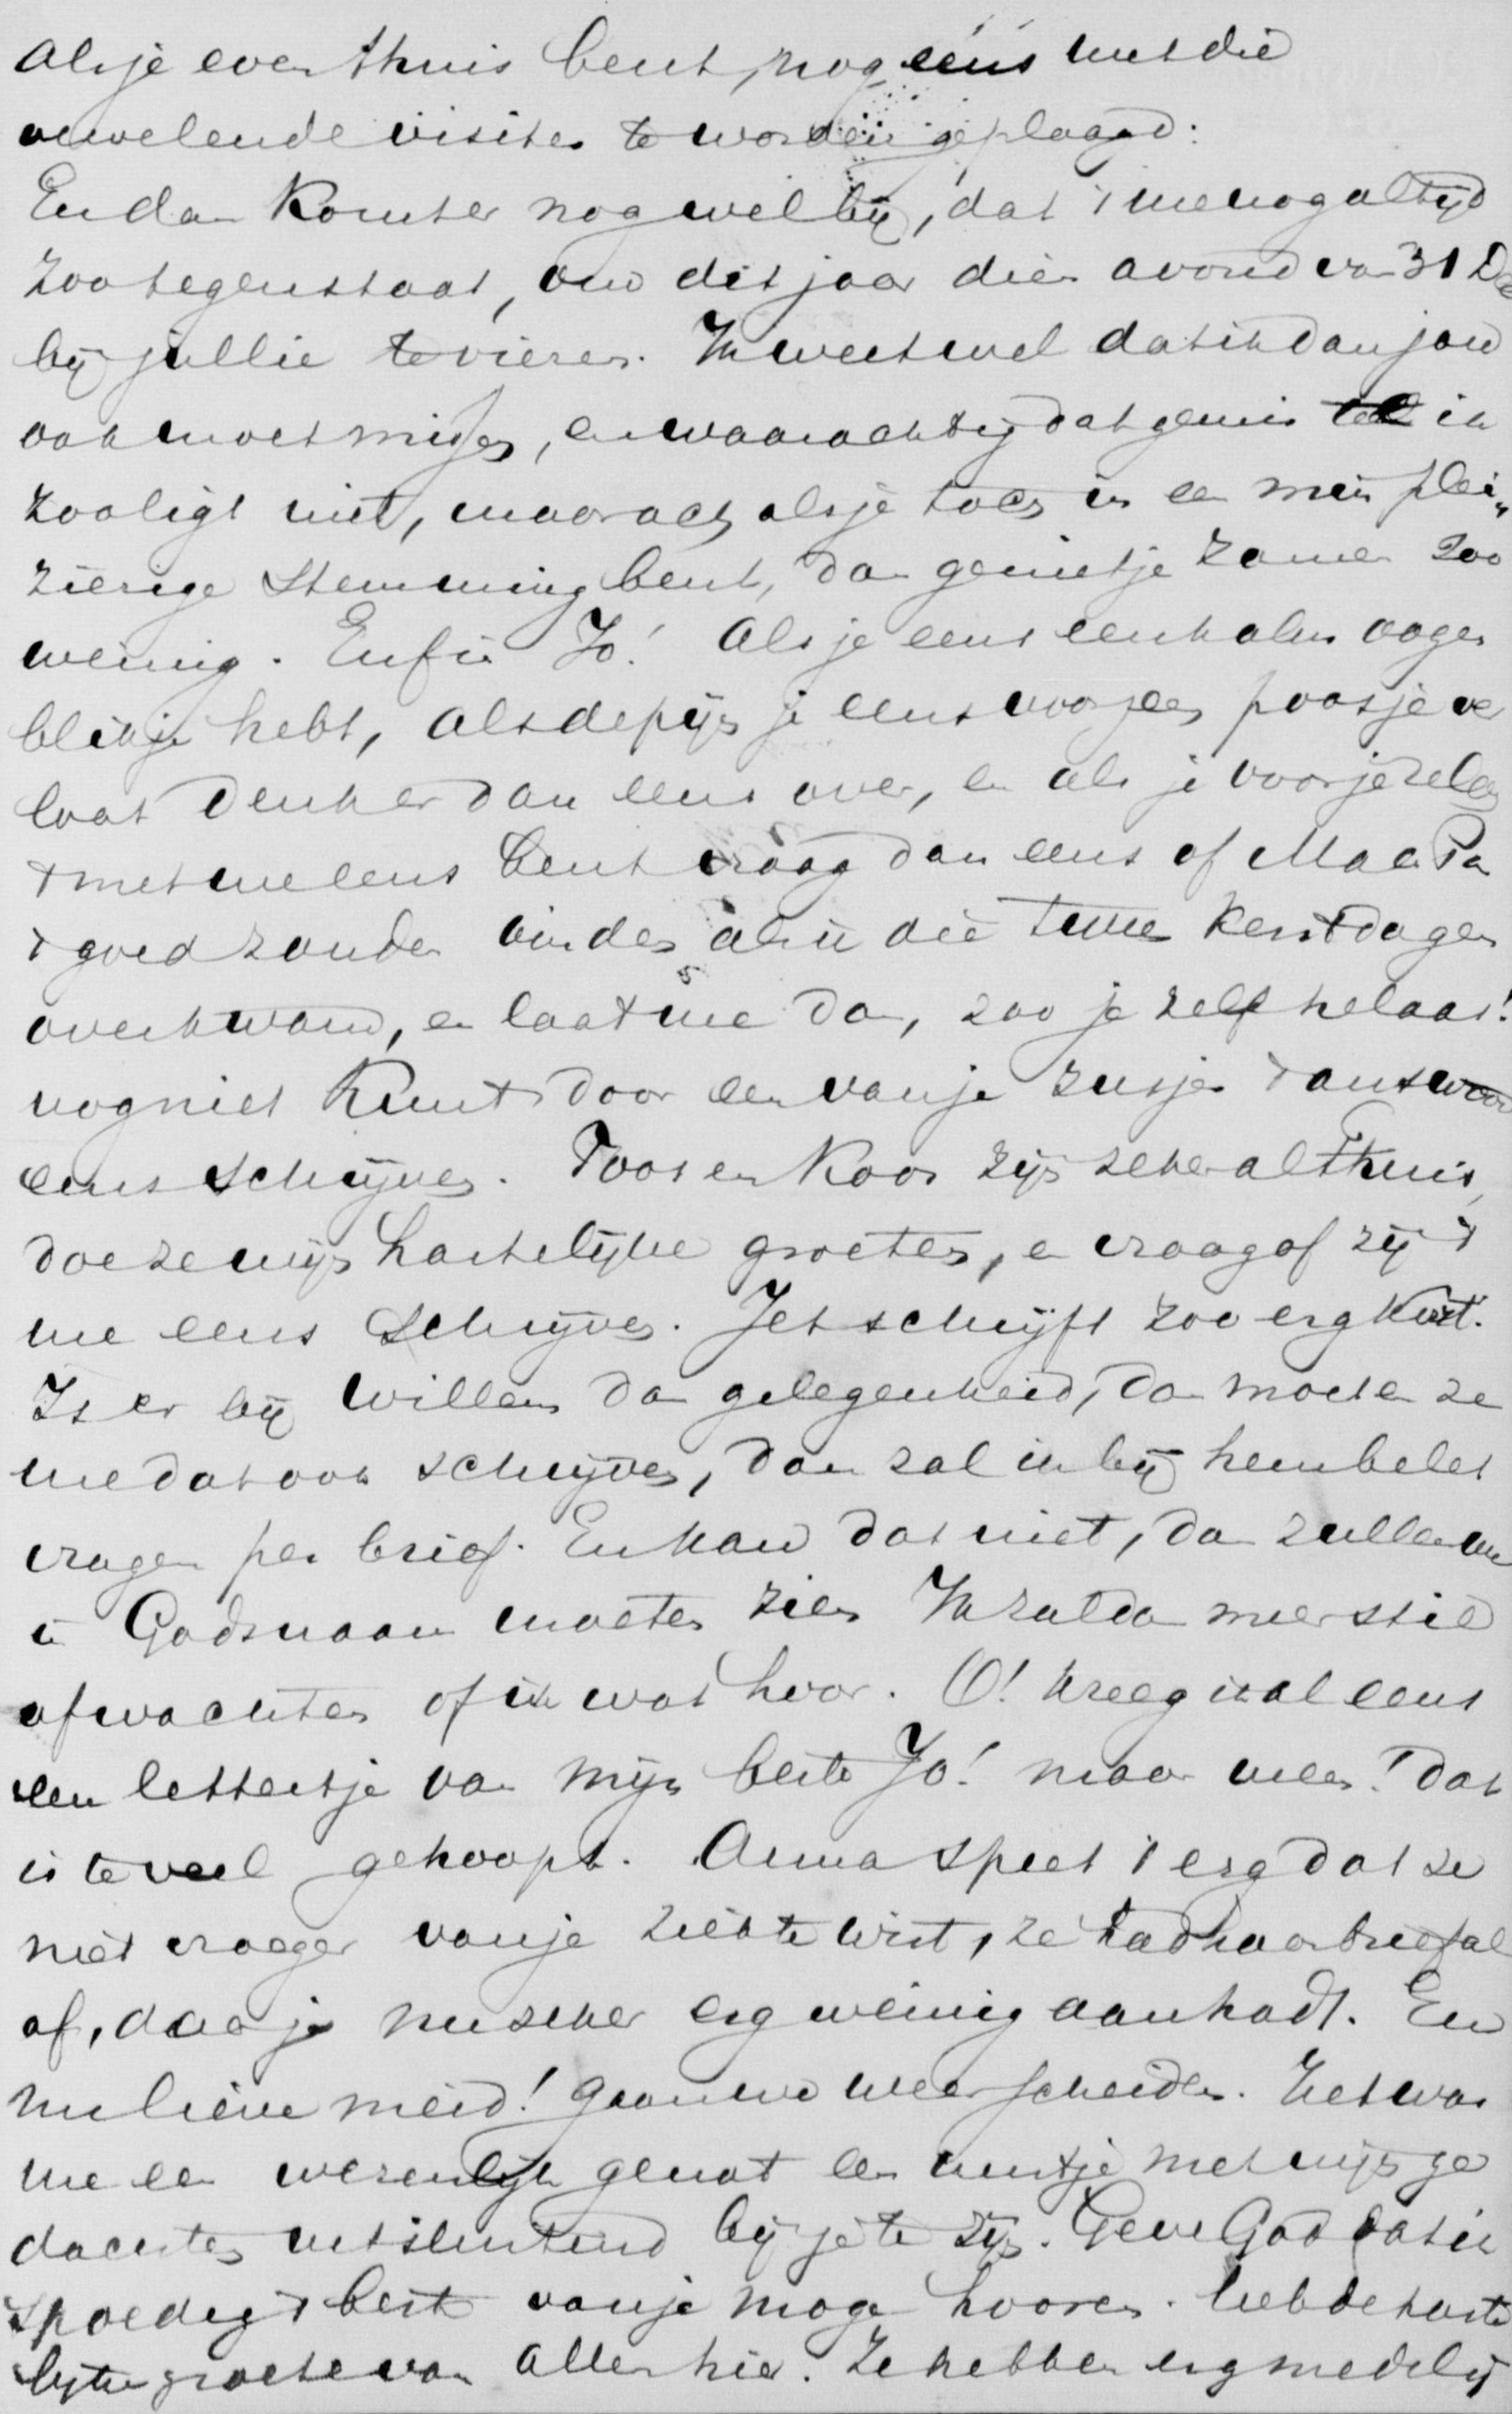 Als je even thuis bent, nog eens met die
vervelende visites te worden geplaagd:
En dan komt er nog wel bij, dat 't me nog altijd
zoo tegenstaat, om dit jaar dien avond van 31 Dec
bij jullie te vieren. Ik weet wel dat ik dan jou
ook moet missen, en waarachtig dat gemis tel ik
zoo ligt niet, maar ach als je toch in een min plei„
zierige stemming bent, dan geniet je zamen zoo
weinig. Enfin Jo! Als je eens een kalm oogen
blikje hebt, als de pijn je eens voor een poosje ver
laat denk er dan eens over, en als je voor jezelf
't met me eens bent vraag dan eens of Ma en Pa
't goed zouden vinden als ik die twee Kerstdagen
overkwam, en laat me dan, zoo je zelf helaas!
nog niet kunt door een van je zusjes 't antwoord
eens schrijven. Toos en Koos zijn zeker al thuis,
doe ze mijn hartelijke groeten, en vraag of zij 't
me eens schrijven. Jet schrijft zoo erg kort.
Is er bij Willem dan gelegenheid, dan moeten ze
me dat ook schrijven, dan zal ik bij hem belet
vragen per brief. En kan dat niet, dan zullen we
in Godsnaam moeten zien Ik zal dan meer stil
afwachten of ik wat hoor. O! kreeg ik al eens
een lettertje van mijn beste Jo! maar neen! dat
is te veel gehoopt. Anna speet 't erg dat ze
niet vroeger van je ziekte wist, ze had haar brief al
af, daar je nu zeker erg weinig aan hadt. En
nu lieve meid! gaan we weer scheiden. Het was
me een wezenlijk genot een uurtje met mijn ge
dachten uitsluitend bij je te zijn. Geve God dat ik
spoedig 't beste van je moge hooren. heb de harte
lijke groete van allen hier. Ze hebben erg medelij